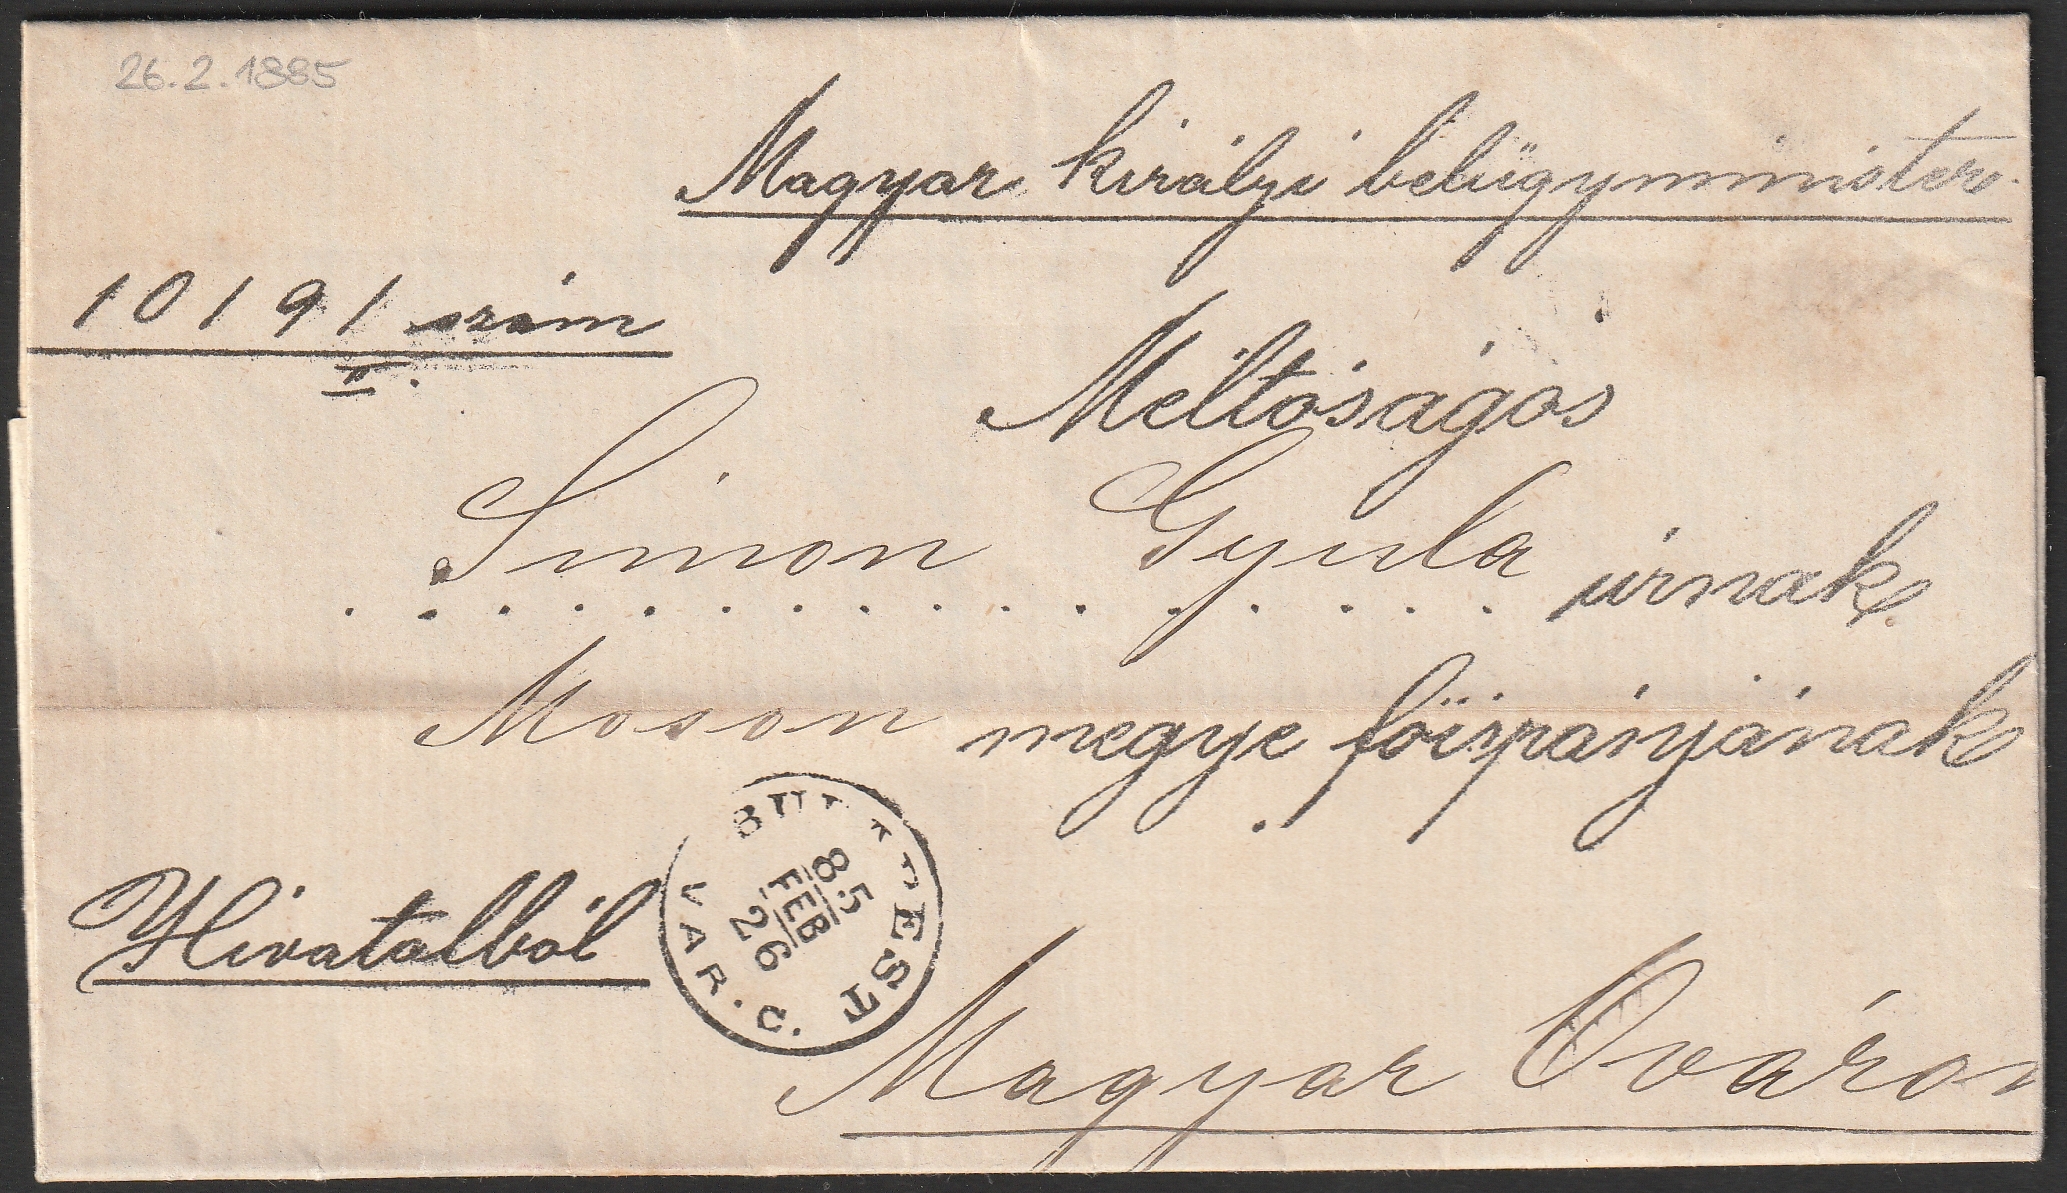 26.2.1885
Magyar királyi belügyminister.
10191 szám
II.
Méltóságos
Simon Gyula úrnak
Moson megye főispánjának
BUDAPEST VÁR. O.
85
FEB
26
Hivatalból
Magyar Óváron